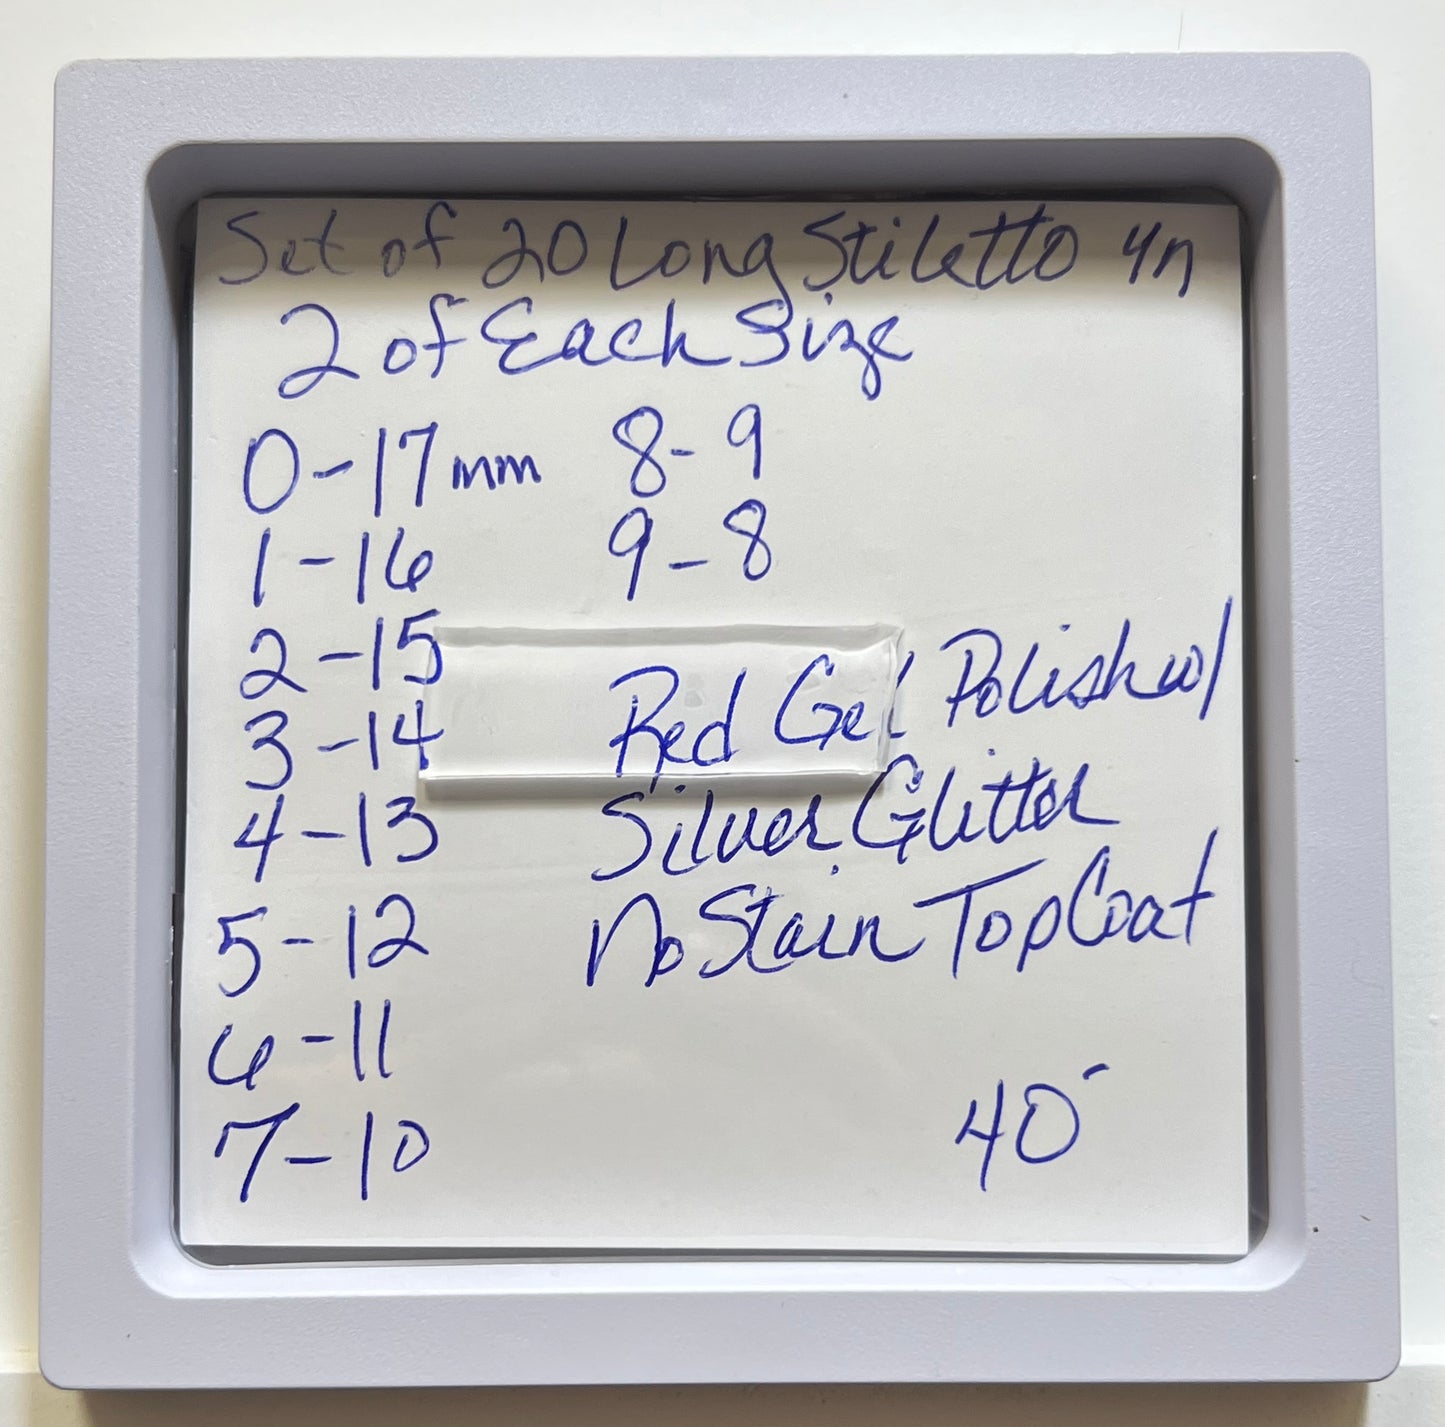 Set of 20 Long Stiletto 4n
2 of Each Size
0-17mm
1-16
2-15
3-14
4-13
5-12
6-11
7-10
8-9
9-8
Red Gel Polish w/
Silver Glitter
No Stain Top Coat
40-